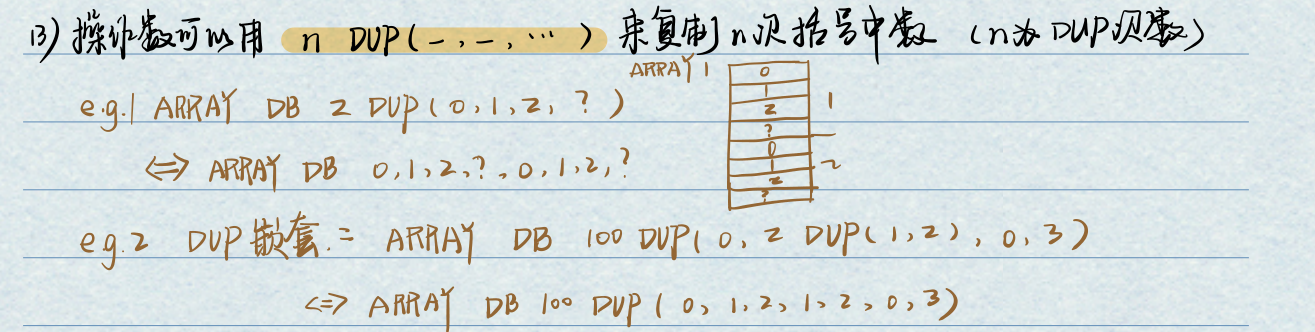 13) 操作数可以用 n DUP(-,-,…) 来复制n次括号中数 (n为DUP次数)
ARRAY 1
0
1
2
?
0
1
2
?
1
2
e.g.1 ARRAY DB 2 DUP(0,1,2,?)
⇔ ARRAY DB 0,1,2,?,0,1,2,?
e.g.2 DUP嵌套: ARRAY DB 100 DUP(0,2 DUP(1,2),0,3)
⇔ ARRAY DB 100 DUP(0,1,2,1,2,0,3)